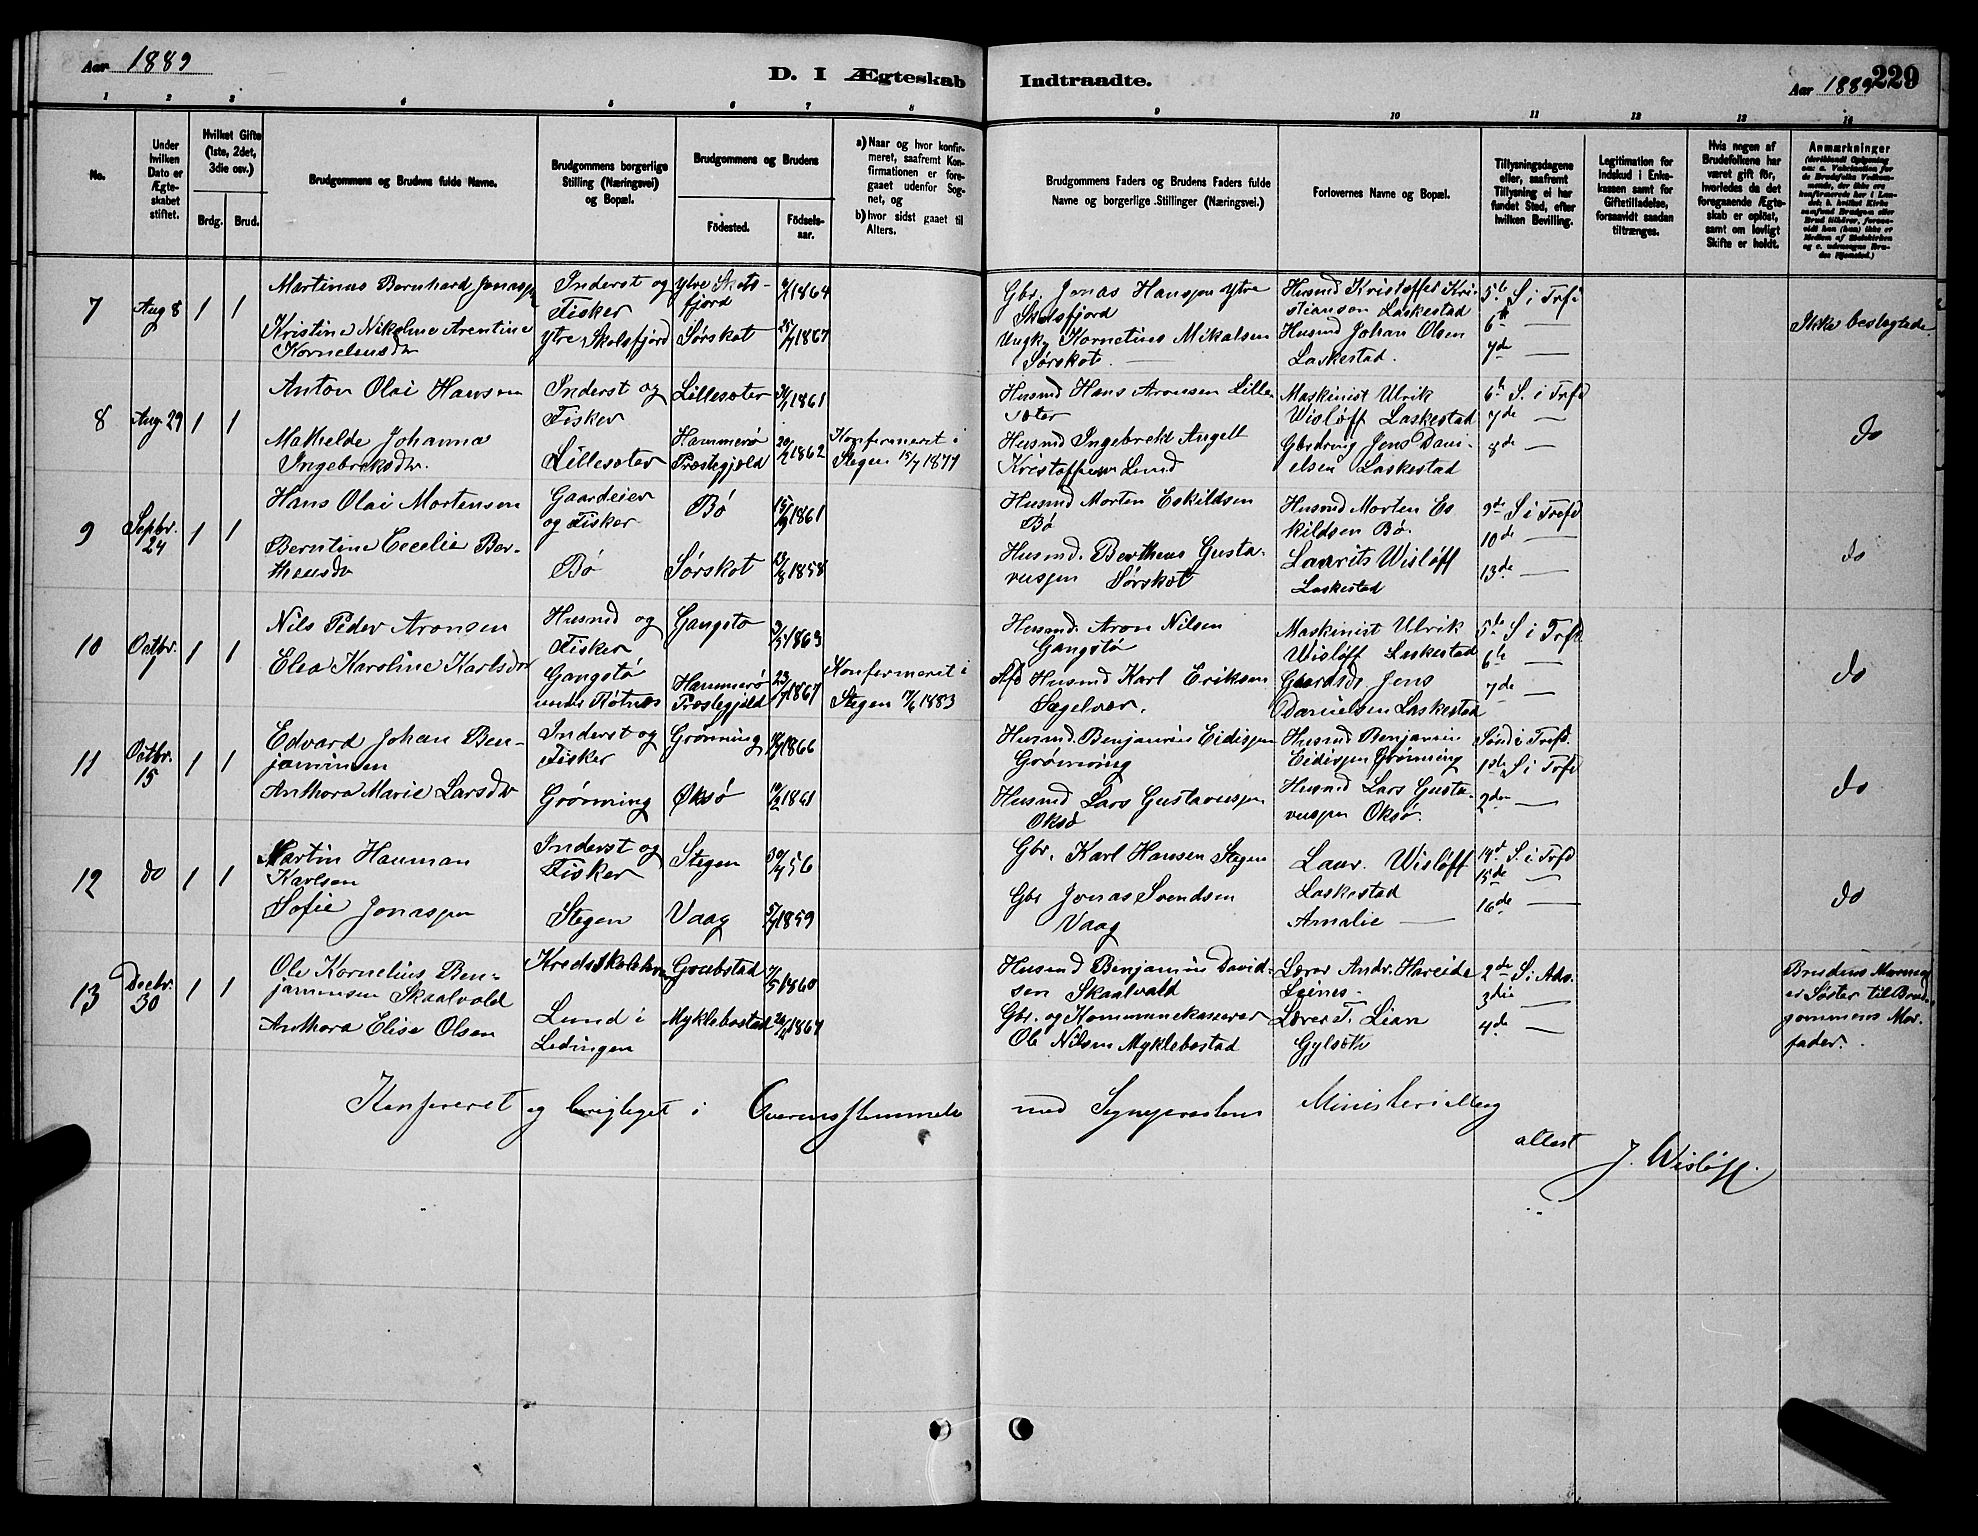 Aar 1889
D. I Ægteskab Indtraadte.
Aar 1889 229
1 2 3 4 5 6 7 8 9 10 11 12 13 14
No.
Under hvilken Dato er Ægteskabet stiftet.
Hvilket Gifte (1ste, 2det, 3die osv.)
Brdg. Brud.
Brudgommens og Brudens fulde Navne.
Brudgommens borgerlige Stilling (Næringsvei) og Bopæl.
Brudgommens og Brudens
Födested. Födselsaar.
a) Naar og hvor konfirmeret, saafremt Konfirmationen er foregaaet udenfor Sognet, og
b) hvor sidst gaaet til Alters.
Brudgommens Faders og Brudens Faders fulde Navne og borgerlige Stillinger (Næringsvei.)
Forlovernes Navne og Bopæl.
Tillysningsdagene eller, saafremt Tillysning ei har fundet Sted, efter hvilken Bevilling.
Legitimation for Indskud i Enkekassen samt for Giftetilladelse, forsaavidt saadan tiltrænges.
Hvis nogen af Brudefolkene har været gift för, hvorledes da det foregaaende Ægteskab er oplöst, samt om lovligt Skifte er holdt.
Anmærkninger
7 Aug 8 1 1
Martinus Bernhard Jonassen
Kristine Nikoline Arentine
Kornelensdtr
Inderst og
Fisker
Ytre Skotsfjord
Ytre Skotsfjord 1864
Sørskot 1867
Gbr. Jonas Hanssen Ytre
Skotsfjord
Ungk. Kornelius Mikalsen
Sørskot.
Husmd Kristoffer Kristiansen Laskestad
Husmd Johan Olsen
Laskestad.
5te S. i Trefd
6te —
7de —
Ikke beslegtede
8 Aug. 29 1 1
Anton Olai Hansen
Mathilde Johanna
Ingebreksdtr.
Inderst og
Fisker
Lillesæter
Lillesæter 1861
Hammerø
Præstegjæld 1862
Konfermeret i
Stegen 15/7 1877
Husmd Hans Aronsen Lillesæter
Husmd Ingebrekt Angell
Kristoffersen Lund
Maskinist Ulrik
Wisløff Laskestad
Gbrdreng Jens Danielsen Laskestad
6te S. i Trefd
7de —
8de —
do
9 Sepbr. 24 1 1
Hans Olai Mortensen
Berntine Cecelie Bertheusdtr
Gaardeier
og Fisker
Bø
Bø 15/9 1861
Sørskot 1858
Husmd Morten Eskildsen
Bø
Husmd. Bertheus Gustavussen Sørskot
Husmd Morten Eskildsen Bø.
Laurits Wisløff
Laskestad
9de S i Trefd
10de —
13de —
do
10 Octbr. 1 1 1
Nils Peder Aronsen
Elea Karoline Karlsdtr
Husmd og
Fisker
Gangstø
under Rotnes
Gangstø 1863
Hammerø
Præstegjæld 1867
Konfermeret i
Stegen 1883
Husmd. Aron Nilsen
Gangstø
Afd Husmd Karl Eriksen
Sagelvær.
Maskinist Ulrik
Wisløff Laskestad
Gaardsdr. Jens
Danielsen Laskestad
5te S i Trefd
6te —
7de —
do
11 Octbr. 15 1 1
Edvard Johan Benjaminsen
Anthora Marie Larsdtr
Inderst og
Fisker
Grønning
Grønning 1866
Øksø 1861
Husmd. Benjamin Eidissen
Grønning
Husmd Lars Gustavussen
Oksø
Husmd Benjamin
Eidissen Grønning
Husmd Lars Gustavussen Oksø.
Sønd i Trefd.
1ste S i Trefd
2den —
do
12 do 1 1
Martin Hauman
Karlsen
Sofie Jonassen
Inderst og
Fisker
Stegen
Stegen 56
Vaag 1859
Gbr. Karl Hansen Stegen
Gbr Jonas Svendsen
Vaag
Laur. Wisløff
Laskestad
Amalie —
14de S. i Trefd
15de —
16de —
do
13 Decbr. 30 1 1
Ole Kornelius Benjaminsen Skaalvold
Anthora Elise Olsen
Kredsskolelærer
Lund i
Lødingen
Grubstad 1860
Myklebostad 1867
Husmd Benjamin Davidsen Skaalvald
Gbr. og Kommunekasserer
Ole Nilsen Myklebostad
Lærer Andr. Hareide
Leines.
Lærer T. Lian
Gylseth
2den S. i Adv.
3die —
4de —
Brudens Mormor
er Søster til Brudgommens Morfader.
Konfereret og berigtiget i Overensstemmelse med Sogneprestens Ministerialbog
attest
J. Wisløff.